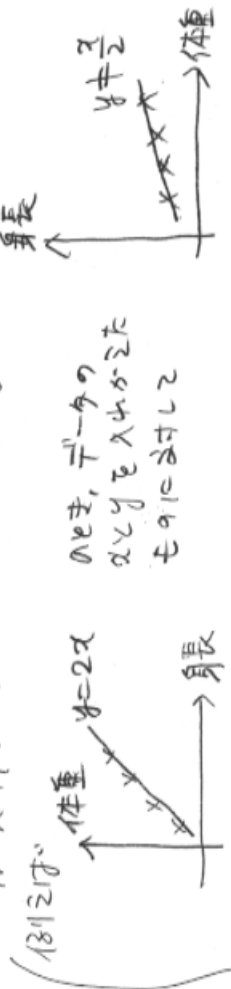 (例えば、
体重
y=2x
身長
のとき、データの
xとyを入れかえた
ものに対して
身長
y≠x/2
体重